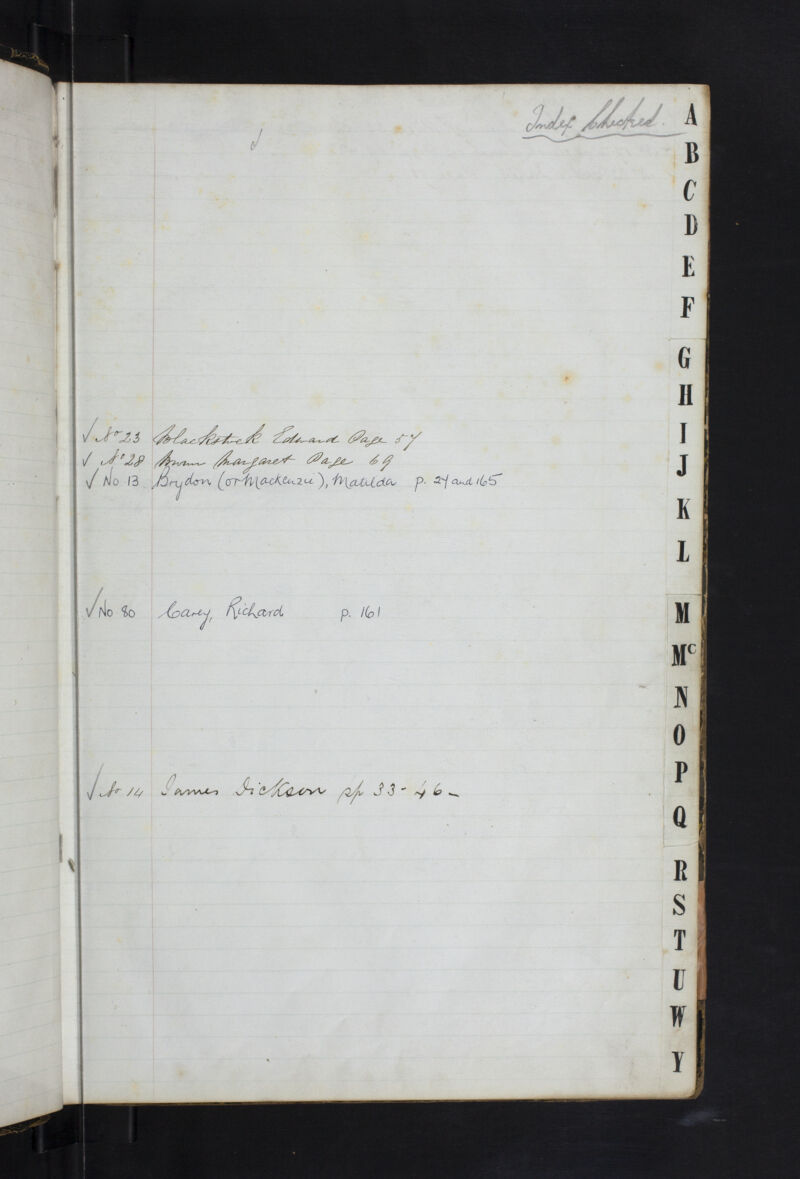 Index Checked.
√ No 23 Blackstock Edward Page 57
√ No 28 Margaret Page 69
√ No 13 Brydon (or Mackenzie), Matilda p. 24 and 165
√ No 80 Carey, Richard p. 161
√ No 14 James Dickson pp 33 - 46 -
A
B
C
D
E
F
G
H
I
J
K
L
M
Mc
N
O
P
Q
R
S
T
U
W
Y